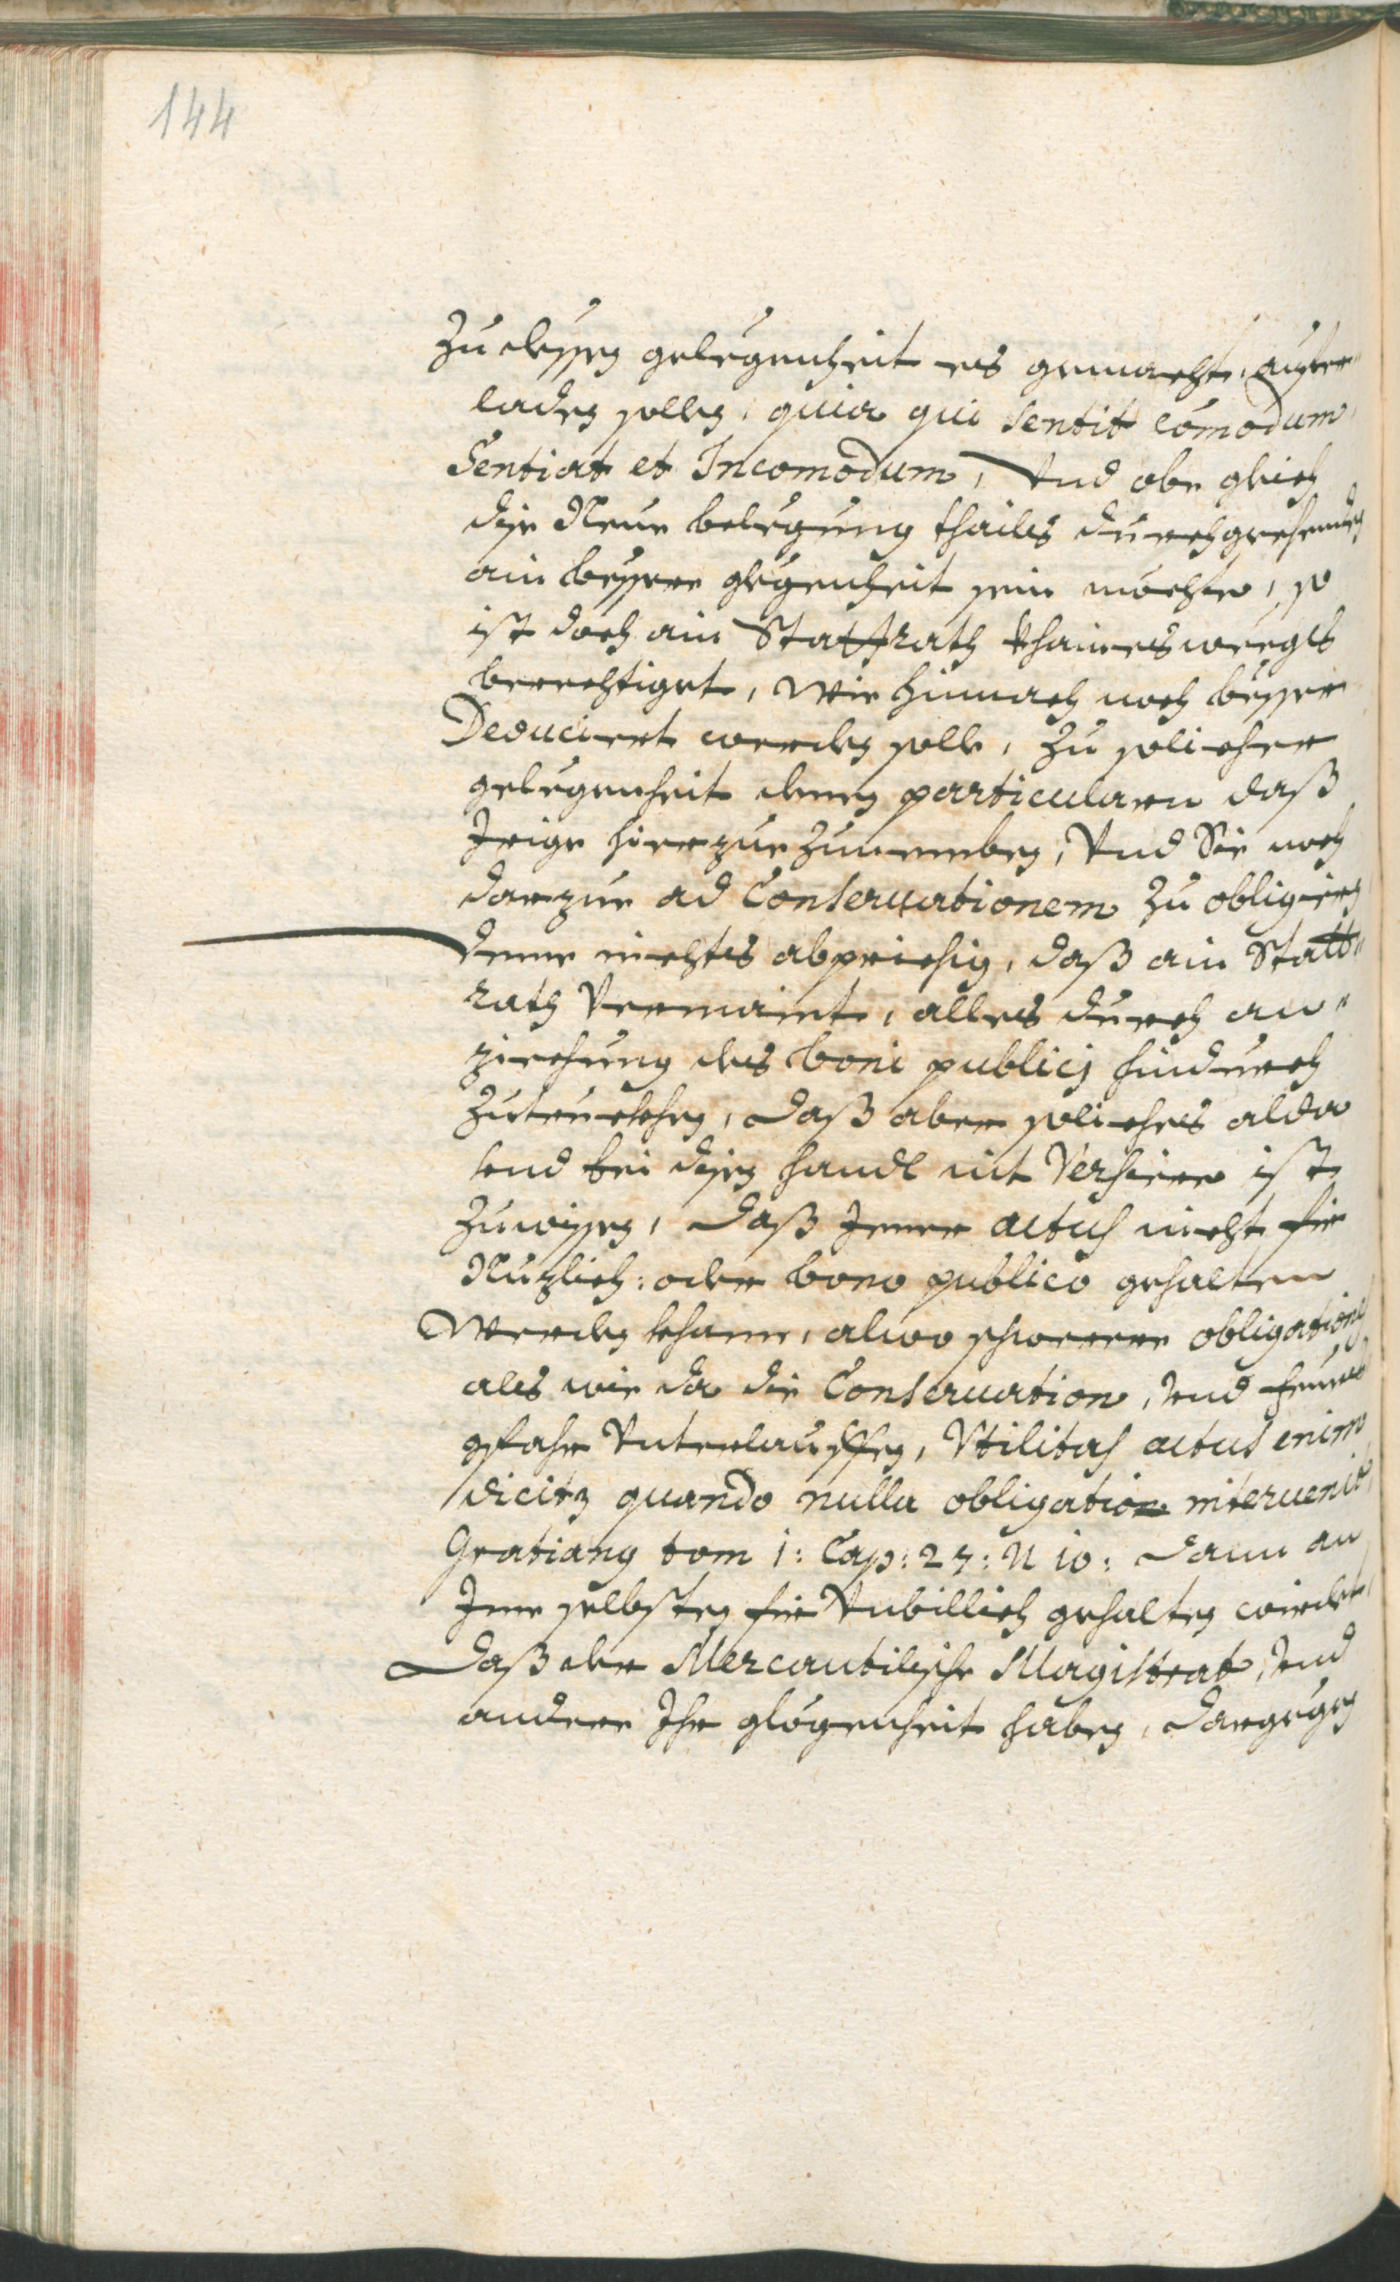 144
Zu dessen gelegenheit es gemacht, aufer„
laden sollen, quia qui sentit comodum
Sentiat et Incomodum, Vnd obe gleich
dise Neue belegung thails durchgehendts
ain bessere glegenheit sein möchte, so
ist doch ain Stattrath khainesweegs
berechtiget, wie hinnach noch besser
Deduciert werden solle, zu solicher
gelegenheit denen particularn daß
Ieige hierzue zunemben, Vnd Sie noch
darzue ad Conseruationem zu obligiern
deme nichts abprichig, daß ain Statt„
rath Vermaint, alles durch an„
ziechung des boni publicj hindurch
zutruckhen, daß aber soliches alda
vnd bei disen handl nit Versiere ist
zuwissen, daß Jener actus nicht fir
Nuzlich: oder bono publico gehalten
werden khann, alwo schwerere obligationes
als wie da die Conseruation, vnd feuers
gfahr Vnterlauffen, Vtilitas actus enim
dicitur quando nulla obligation interuenit,
Gratianus tom 1: Cap: 27: N 10: dann an
Ime selbsten fir Vnbillich gehalten wirdet,
daß der Mercantilische Magistrat, vnd
andere Ihr glögenheit haben, dargegen